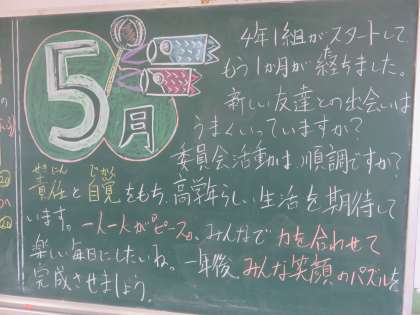 5月
4年1組がスタートして
もう1か月が経ちました。
新しい友達との出会いは
うまくいっていますか?
委員会活動は、順調ですか?
せきにん じかく
責任と自覚をもち、高学年らしい生活を期待して
います。一人一人がピースか、みんなで力を合わせて
楽しい毎日にしたいね。一年後、みんな笑顔のパズルを
完成させましょう。